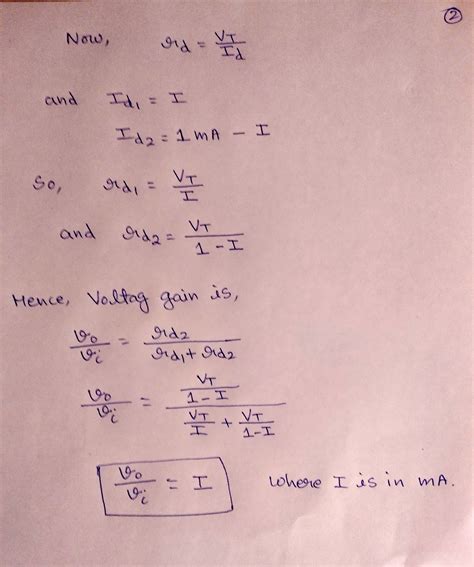 ②
Now, rd = VT/Id
and Id1 = I
Id2 = 1 mA - I
So, rd1 = VT/I
and rd2 = VT/(1-I)
Hence, Voltag gain is,
vo/vi = rd2/(rd1 + rd2)
vo/vi = (VT/(1-I))/(VT/I + VT/(1-I))
vo/vi = I where I is in mA.